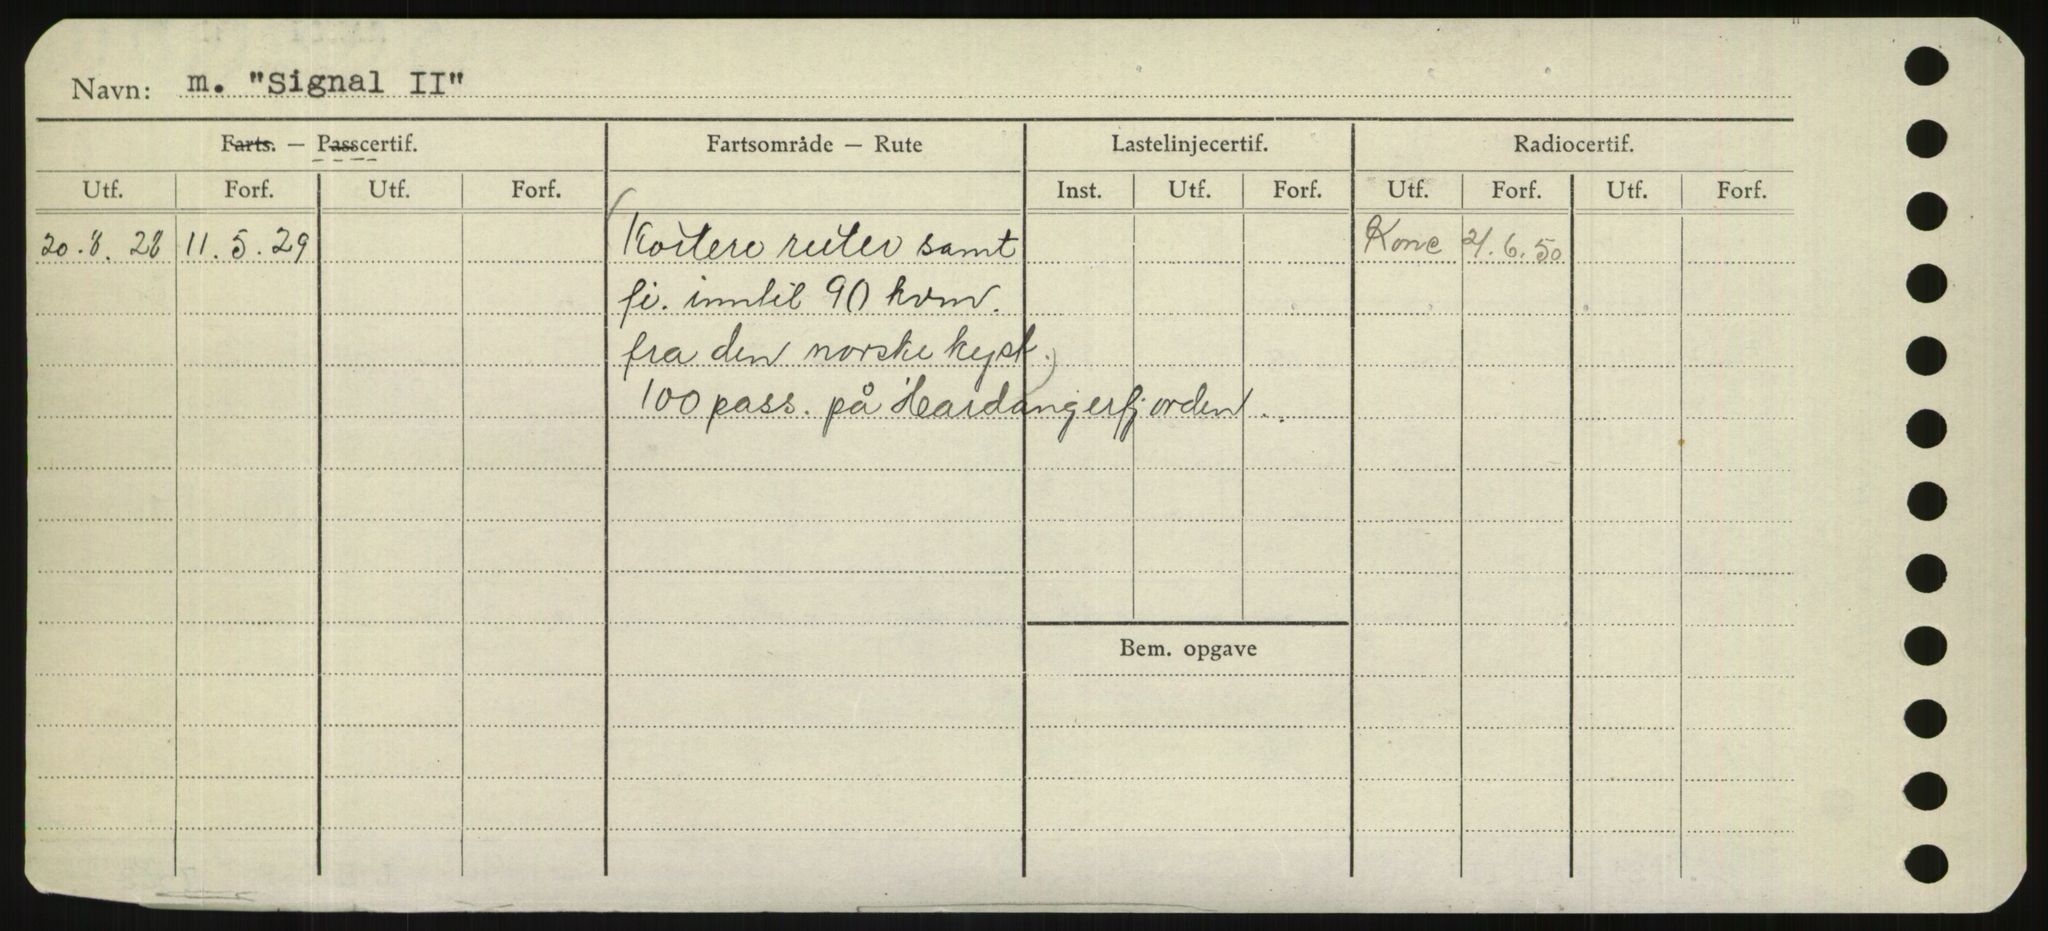 Navn: m. "Signal II"
Farts. — Passcertif. Fartsområde — Rute Lastelinjecertif. Radiocertif.
Utf. Forf. Utf. Forf. Inst. Utf. Forf. Utf. Forf. Utf. Forf.
20.8.28 11.5.29 (Kortere ruter samt Konc 21.6.50
fi. inntil 90 kvm.
fra den norske kyst.)
100 pass. på Hardangerfjorden.
Bem. opgave